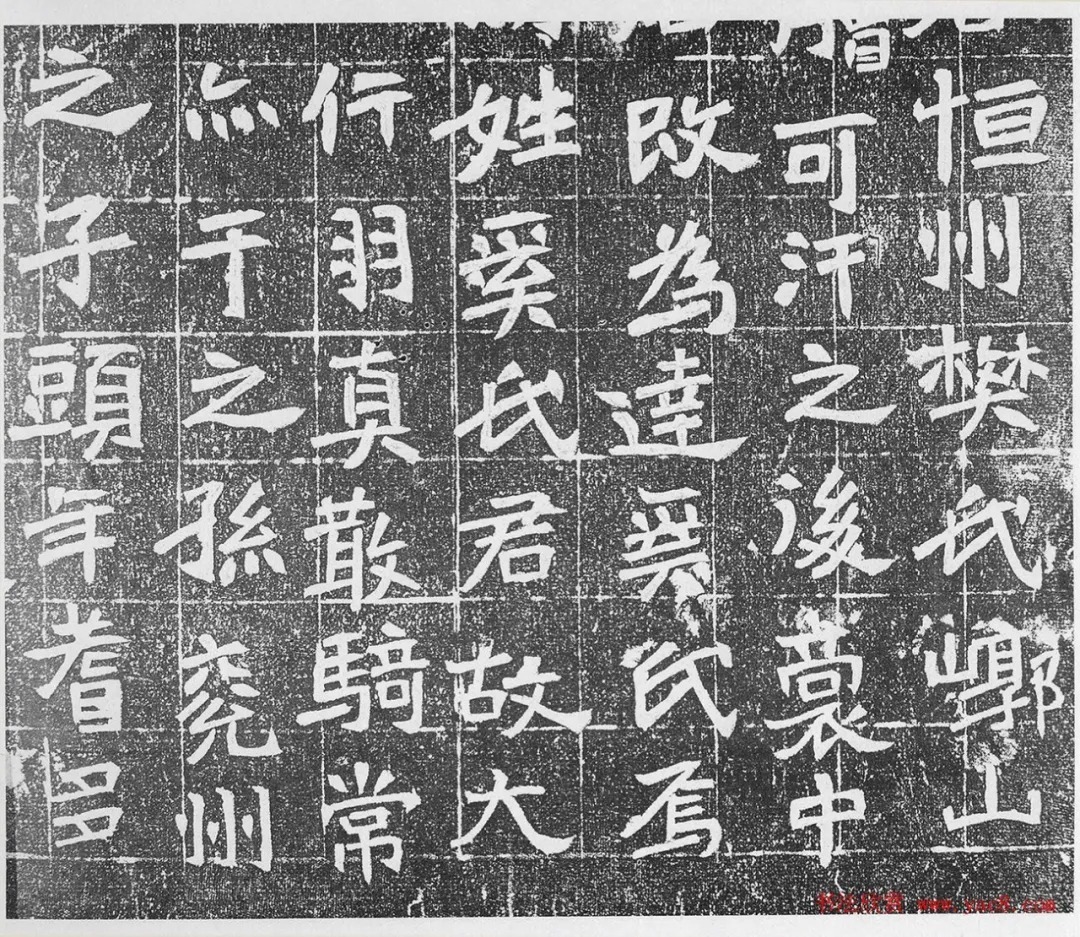 恒州樊氏崞山
可汗之後裔中
改為達奚氏焉
姓奚氏君故大
行羽真散騎常
亦干之孫兖州
之子頭年耆多